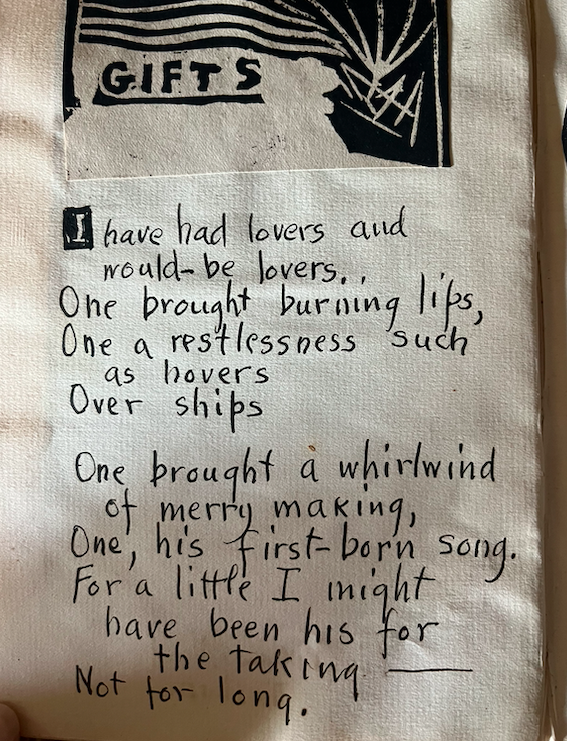 GIFTS
I have had lovers and
would-be lovers..
One brought burning lips,
One a restlessness such
as hovers
Over ships
One brought a whirlwind
of merry making,
One, his first-born song.
For a little I might
have been his for
the taking —
Not for long.